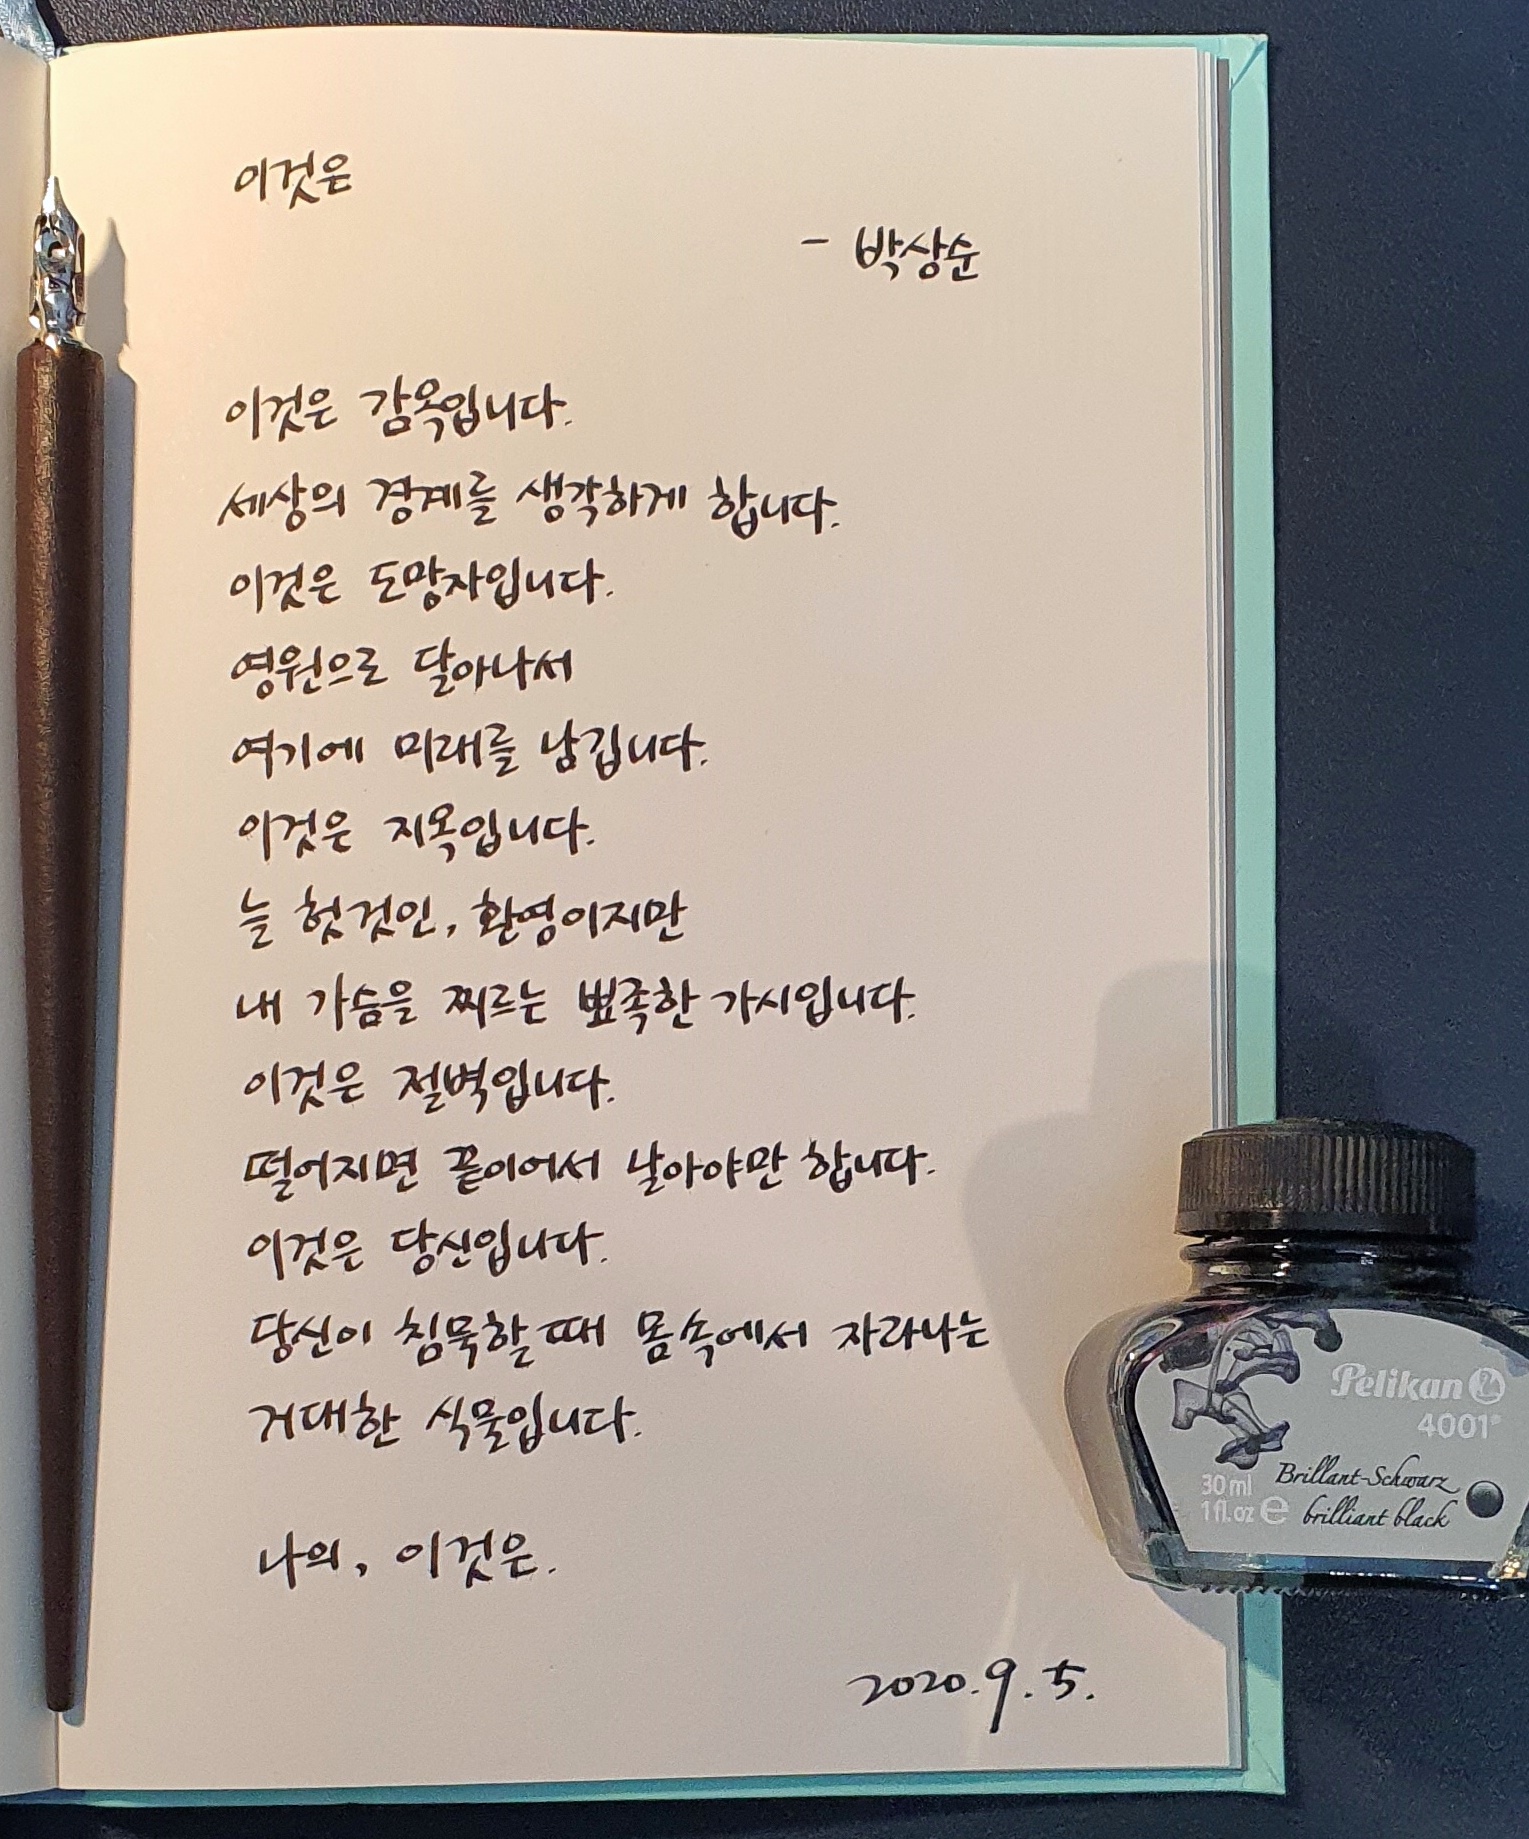 이것은
- 박상순
이것은 감옥입니다.
세상의 경계를 생각하게 합니다.
이것은 도망자입니다.
영원으로 달아나서
여기에 미래를 남깁니다.
이것은 지옥입니다.
늘 헛것인, 환영이지만
내 가슴을 찌르는 뾰족한 가시입니다.
이것은 절벽입니다.
떨어지면 끝이어서 날아야만 합니다.
이것은 당신입니다.
당신이 침묵할 때 몸속에서 자라나는
거대한 식물입니다.
나의, 이것은.
2020.9.5.
Pelikan
4001®
Brillant-Schwarz
brilliant black
30 ml
1 fl. oz e